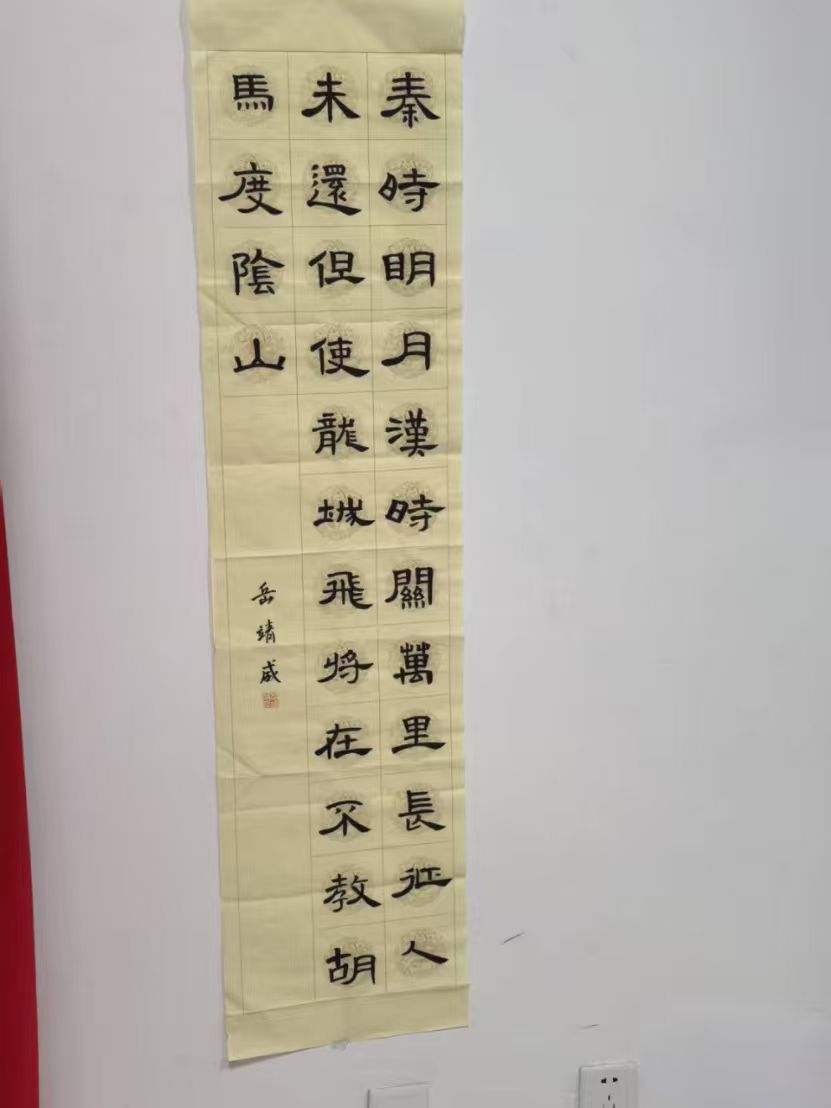 秦時明月漢時關萬里長征人
未還但使龍城飛将在不教胡
馬度陰山
岳靖威